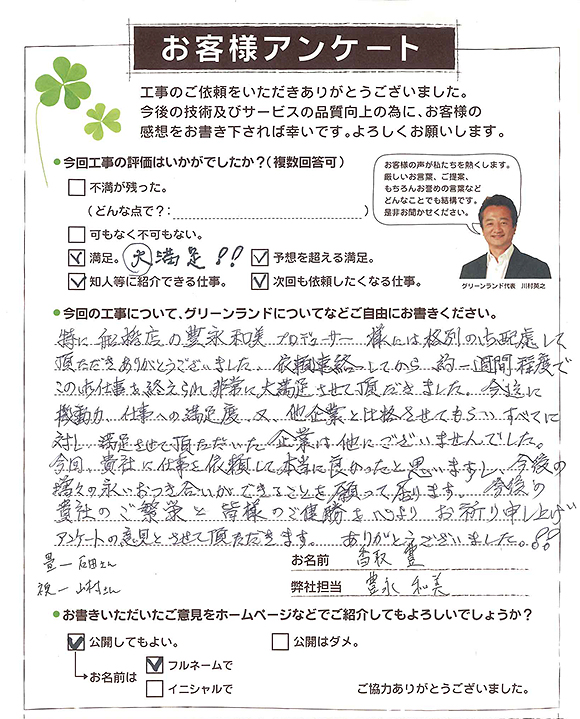 お客様アンケート
工事のご依頼をいただきありがとうございました。
今後の技術及びサービスの品質向上の為に、お客様の
感想をお書き下されば幸いです。よろしくお願いします。
●今回工事の評価はいかがでしたか?(複数回答可)
不満が残った。
(どんな点で?: )
可もなく不可もない。
満足。 大満足!!
予想を超える満足。
知人等に紹介できる仕事。
次回も依頼したくなる仕事。
お客様の声が私たちを熱くします。
厳しいお言葉、ご提案、
もちろんお誉めの言葉など
どんなことでも結構です。
是非お聞かせください。
グリーンランド代表 川村英之
●今回の工事について、グリーンランドについてなどご自由にお書きください。
特に 船橋店の豊永和美プロデューサー 様には格別の占配慮して
頂ただきありがとうございました、依頼連絡してから 約一週間程度で
このお仕事を終えられ、非常に大満足させて頂だきました。今迄に
機動力、仕事への満足度、又、他企業と比格させてもらい、すべてに
対し、満足させて頂ただいた企業は他にございませんでした。
今回、貴社に仕事を依頼して本当に良かったと思いますし、今後の
永いおつき合いができることを願って居ります。 今後の
貴社のご繁栄と皆様のご健勝を心よりお祈り申し上げ
アンケートの意見とさせて頂ただきます。 ありがとうございました。!!
畳ー石田さん
お名前 香取 豊
祝ー山村さん
弊社担当 豊永 和美
●お書きいただいたご意見をホームページなどでご紹介してもよろしいでしょうか?
公開してもよい。
公開はダメ。
お名前は
フルネームで
イニシャルで
ご協力ありがとうございました。